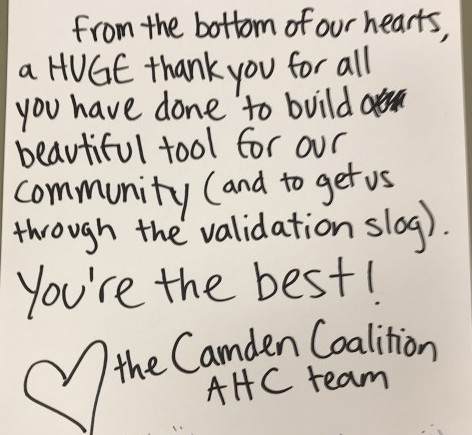 From the bottom of our hearts,
a HUGE thank you for all
you have done to build a
beautiful tool for our
community (and to get us
through the validation slog).
You're the best!
the Camden Coalition
AHC team